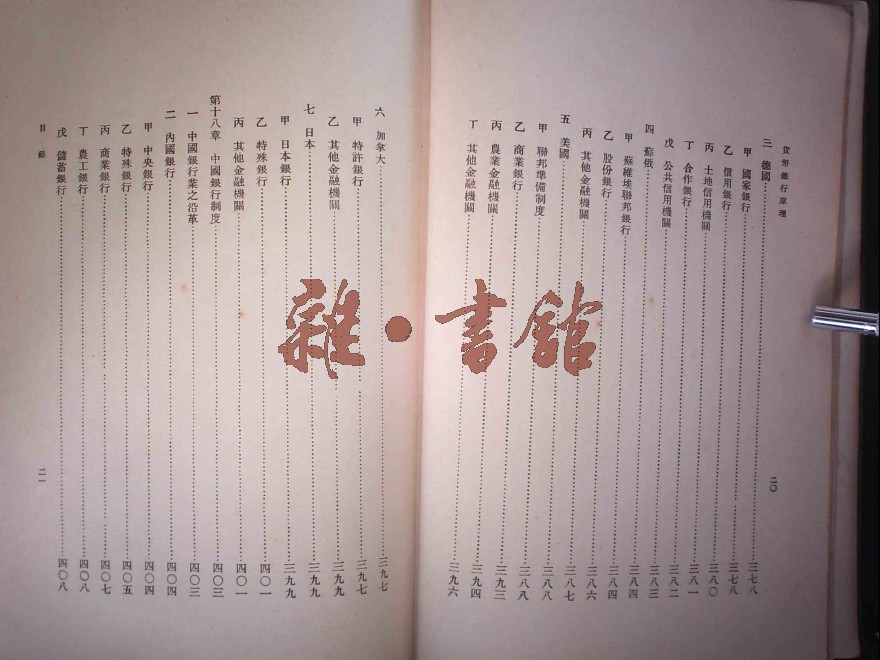 貨幣銀行原理
二〇
三 德國……三七八
甲 國家銀行……三七八
乙 信用銀行……三八〇
丙 土地信用機關……三八一
丁 合作銀行……三八二
戊 公共信用機關……三八三
四 蘇俄……三八四
甲 蘇維埃聯邦銀行……三八四
乙 股份銀行……三八六
丙 其他金融機關……三八七
五 美國……三八八
甲 聯邦準備制度……三八八
乙 商業銀行……三九三
丙 農業金融機關……三九四
丁 其他金融機關……三九六
六 加拿大……三九七
甲 特許銀行……三九七
乙 其他金融機關……三九九
七 日本……三九九
甲 日本銀行……三九九
乙 特殊銀行……四〇一
丙 其他金融機關……四〇一
第十八章 中國銀行制度……四〇三
一 中國銀行業之沿革……四〇三
二 內國銀行……四〇四
甲 中央銀行……四〇四
乙 特殊銀行……四〇五
丙 商業銀行……四〇七
丁 農工銀行……四〇八
戊 儲蓄銀行……四〇八
目錄
二一
雜·書館